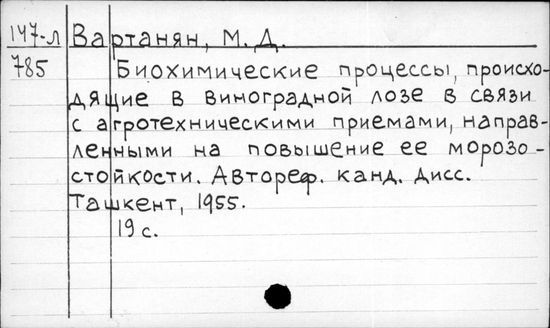 147-л Вартанян, М. Д.
785 Биохимические процессы, происхо-
дящие в виноградной лозе в связи
с агротехническими приемами, направ-
ленными на повышение ее морозо-
стойкости. Автореф. канд. дисс.
Ташкент, 1955.
19 с.